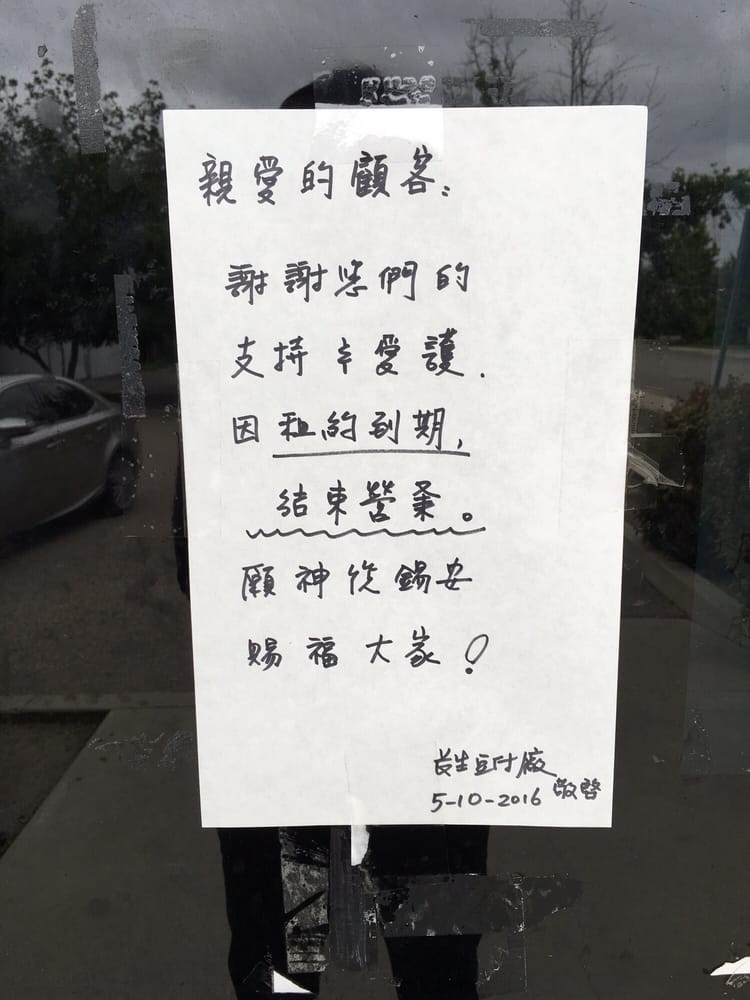 親愛的顧客：
謝謝您們的
支持与愛護.
因租約到期,
結束營業。
願神從錫安
賜福大家！
長生豆付廠
敬啓
5-10-2016